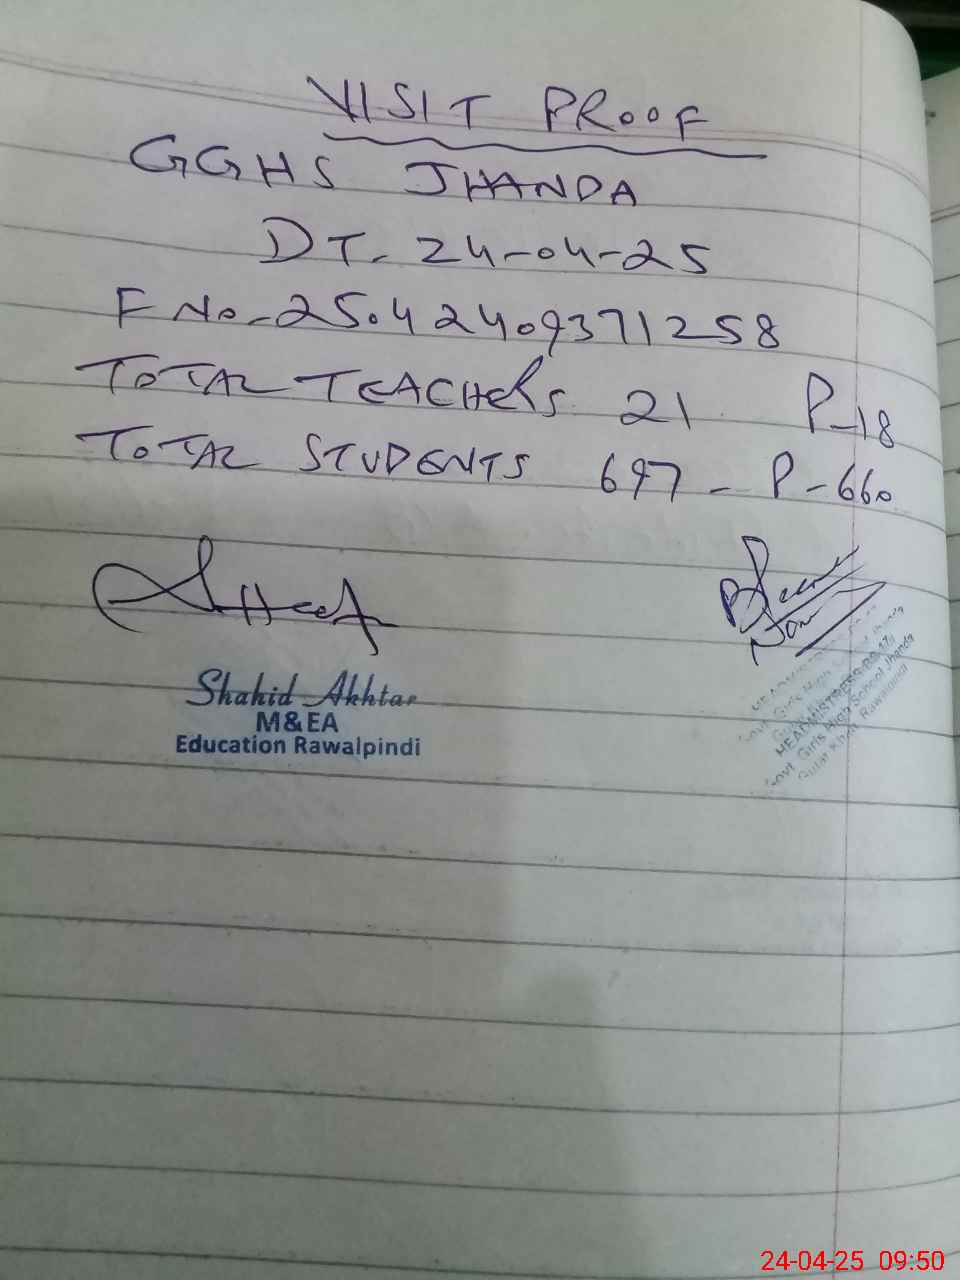 VISIT PROOF
GGHS JHANDA
DT. 24-04-25
F No-25042409371258
TOTAL TEACHERS 21 P-18
TOTAL STUDENTS 697 - P-660
Shahid Akhtar
M&EA
Education Rawalpindi
HEADMISTRESS BS-17
Govt. Girls High School Jhanda
Rawalpindi
24-04-25 09:50